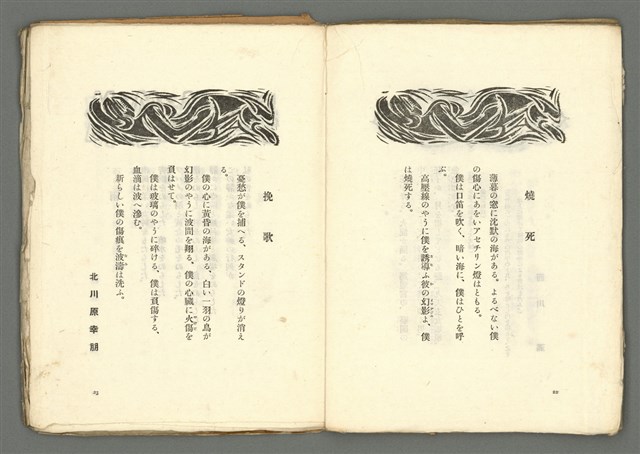 燒死
薄暮の窓に沈默の海がある。よるべない僕
の傷心にあをいアセチリン燈はともる。
僕は口笛を吹く、暗い海に、僕はひとを呼
ぶ。
高壓線のやうに僕を誘導ふ彼の幻影よ、僕
は燒死する。
挽歌
憂愁が僕を捕へる、スタンドの燈りが消え
る。
僕の心に黄昏の海がある。白い一羽の鳥が
幻影のやうに波間を翔る。僕の心臓に火傷を
負はせて。
僕は玻璃のやうに碎ける、僕は負傷する、
血滴は波へ滲む。
新らしい僕の傷痕を波濤は洗ふ。
北川原幸朋